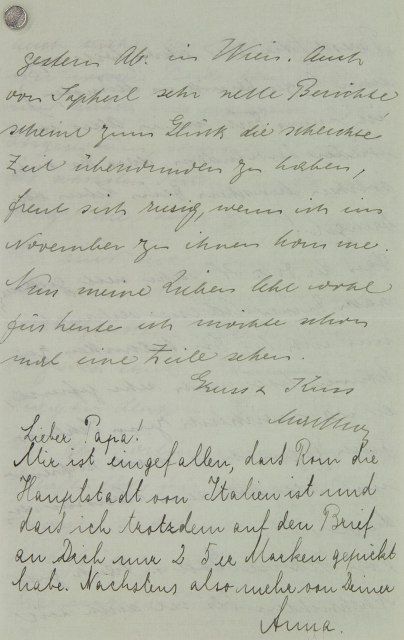 gestern Ab. in Wien. Auch
von Sopherl sehr nette Berichte
scheint zum Glück die schlechte
Zeit überwunden zu haben,
freut sich riesig, wenn ich im
November zu ihnen komme.
Nun meine Lieben lebt wohl
für heute ich möchte schon
mal eine Zeile sehen.
Gruss & Kuss
Lieber Papa!
Mir ist eingefallen, dass Rom die
Hauptstadt von Italien ist und
dass ich trotzdem auf den Brief
an Dich nur 2 5er Marken gepickt
habe. Nächstens also mehr von Deiner
Anna.